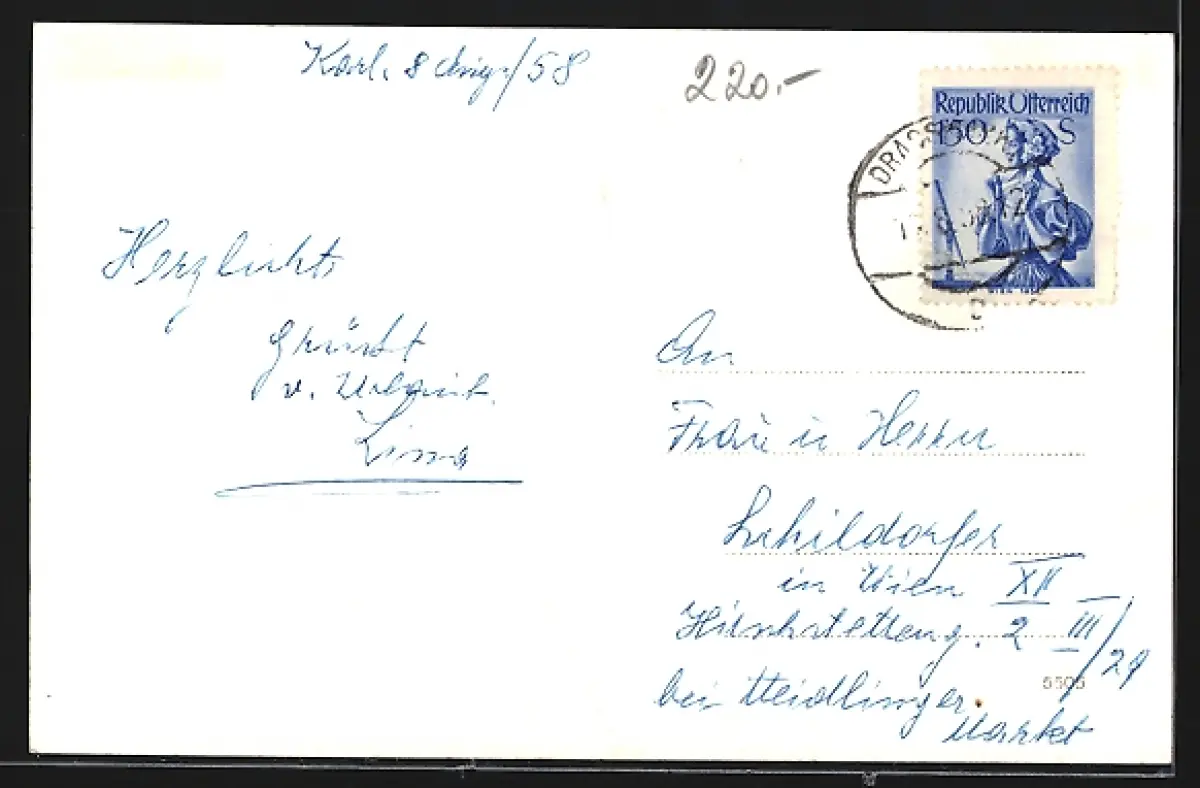 Karl. 8 Aug/58
220.-
Republik Österreich
150 S
Herzlichte
Grüsst
v. Urlaub.
An
Frau u Herrn
Schildorfer
in Wien XII
2 III/29
bei Meidlinger
Markt
5505